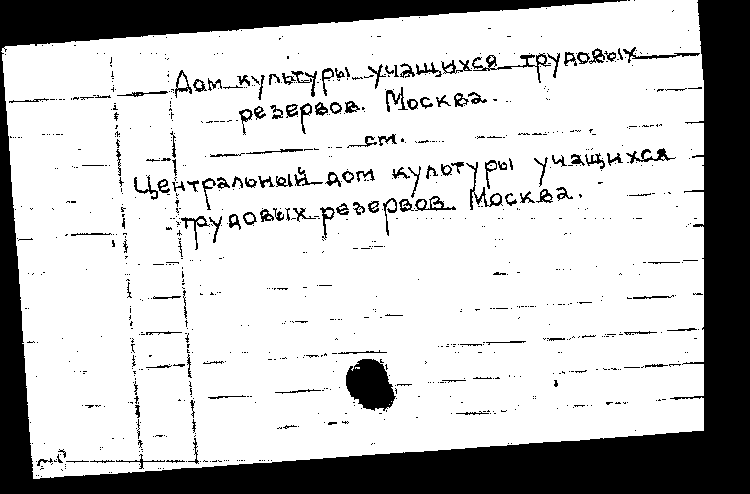 Дом культуры учащихся трудовых
резервов. Москва.
см.
Центральный дом культуры учащихся
трудовых резервов. Москва.